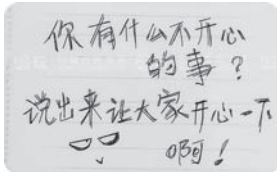 你有什么不开心
的事？
说出来让大家开心一下
啊！